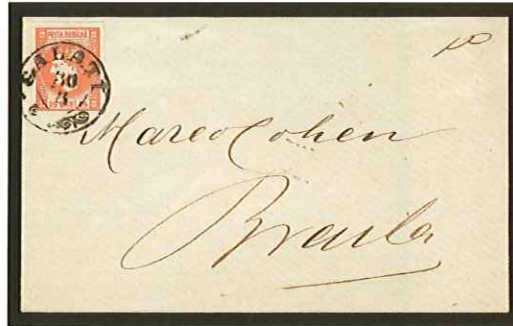 POSTA ROMANA
GALATI
30
Marco Cohen
Braila